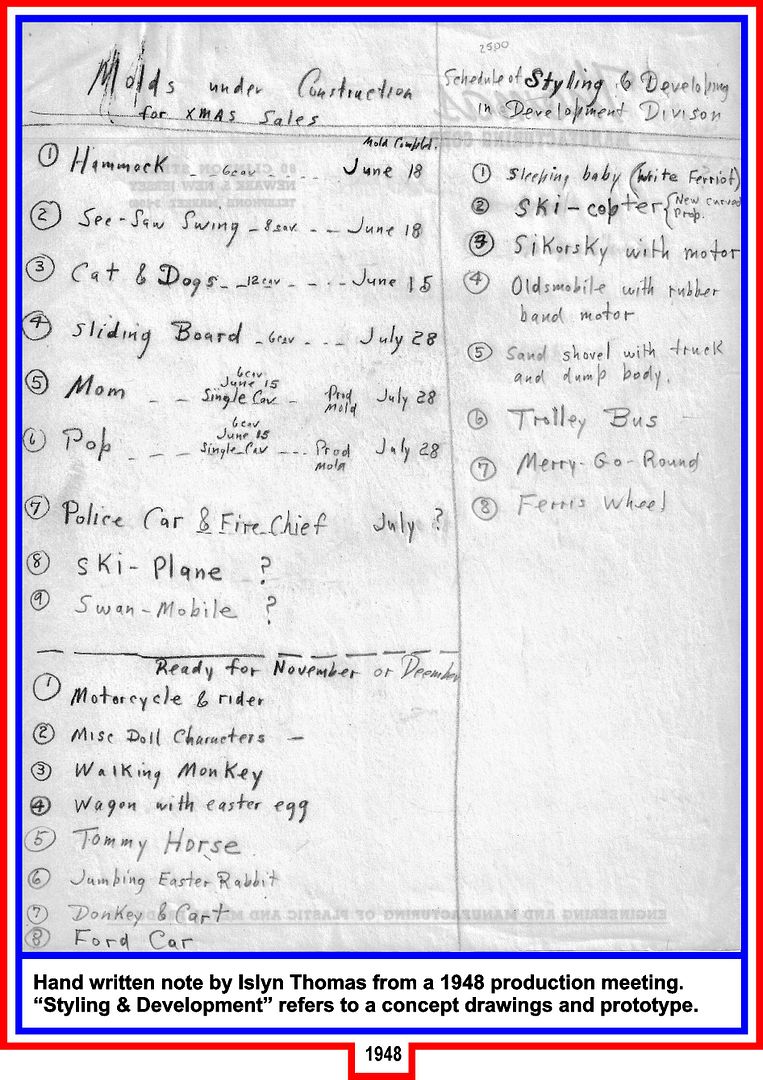 2500
Molds under Construction
for XMAS Sales
Mold Complet.
① Hammock _ 6cav _ . . . . June 18
② See-Saw Swing _ 8cav _ - - June 18
③ Cat & Dogs _ _ 12cav _ - . - . June 15
④ Sliding Board _ 6cav _ . - - July 28
6cav
June 15
⑤ Mom _ _ Single Cav _ Prod Mold July 28
6cav
June 15
⑥ Pop _ _ _ Single Cav _ _ _ Prod Mold July 28
⑦ Police Car & Fire Chief July ?
⑧ SKi-Plane ?
⑨ Swan-Mobile ?
Ready for November or Deember
① Motorcycle & rider
② Misc Doll Characters —
③ Walking Monkey
④ Wagon with easter egg
⑤ Tommy Horse
⑥ Jumbing Easter Rabbit
⑦ Donkey & Cart
⑧ Ford Car
Schedule of Styling & Developing
in Development Divison
① Sleeping baby (Write Ferriot)
② SKi-copter {New curved Prop.
③ Sikorsky with motor
④ Oldsmobile with rubber
band motor
⑤ Sand shovel with truck
and dump body.
⑥ Trolley Bus
⑦ Merry-Go-Round
⑧ Ferris Wheel
MANUFACTURING
NEWARK 5, NEW JERSEY
ENGINEERING AND MANUFACTURING OF PLASTIC AND
Hand written note by Islyn Thomas from a 1948 production meeting.
“Styling & Development” refers to a concept drawings and prototype.
1948